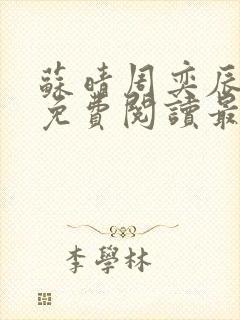 蘇晴周奕辰
免費閱讀最
李學林